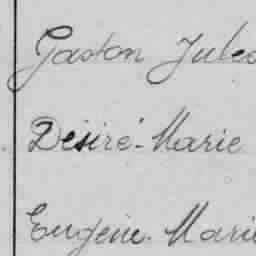 Gaston Jules
Désiré-Marie
Eugène. Marie